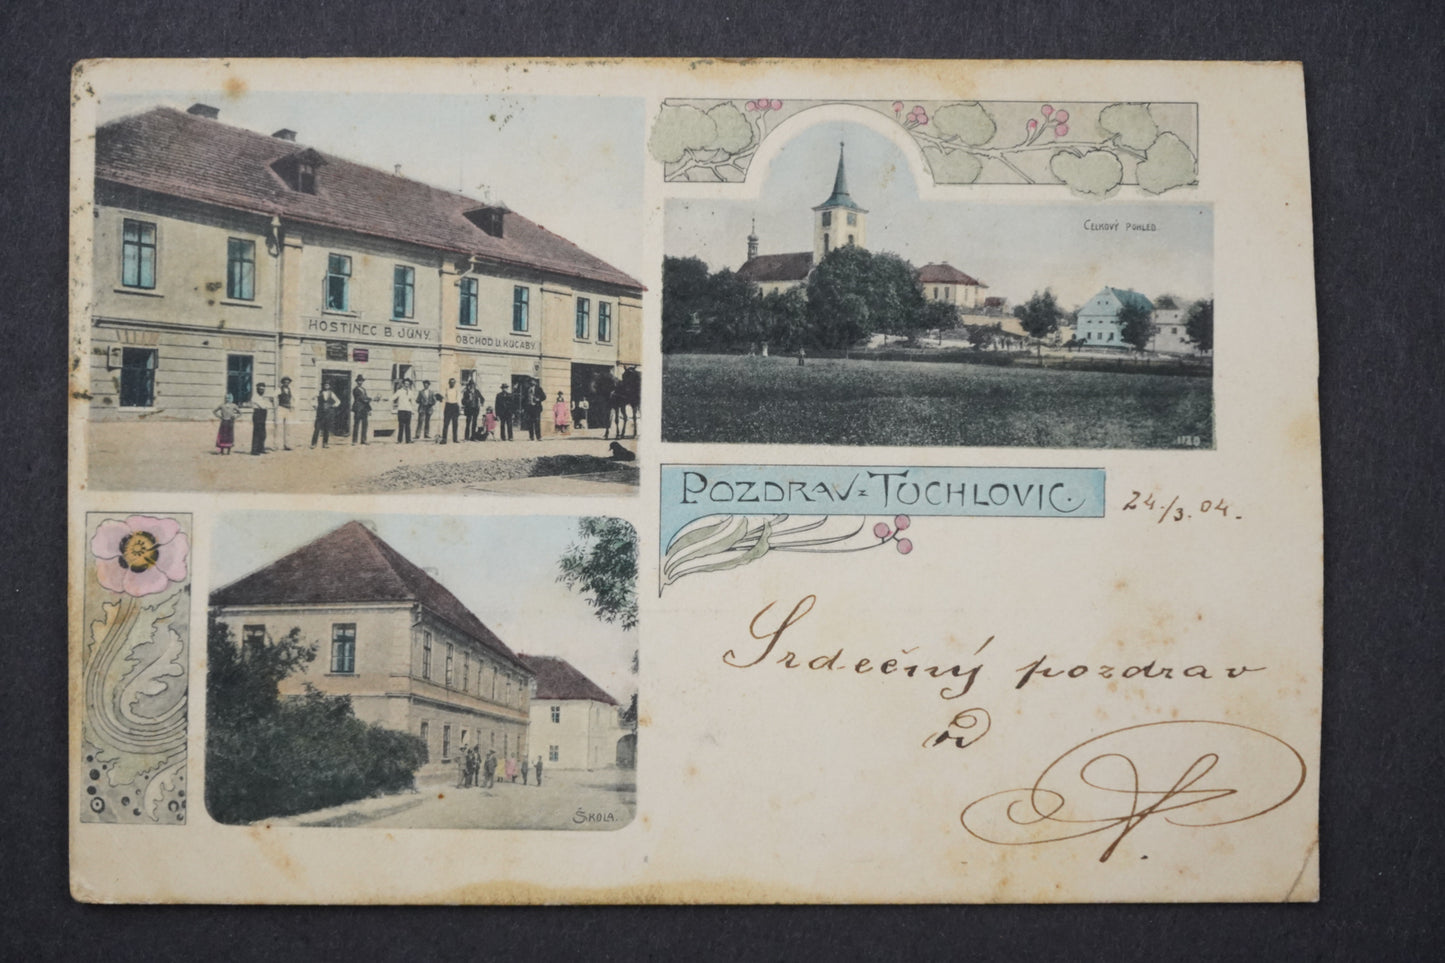 HOSTINEC B. JŮNY.
OBCHOD U. KUCABY
CELKOVÝ POHLED
1120
POZDRAV Z TUCHLOVIC.
24./3. 04.
Srdečný pozdrav
od
ŠKOLA.